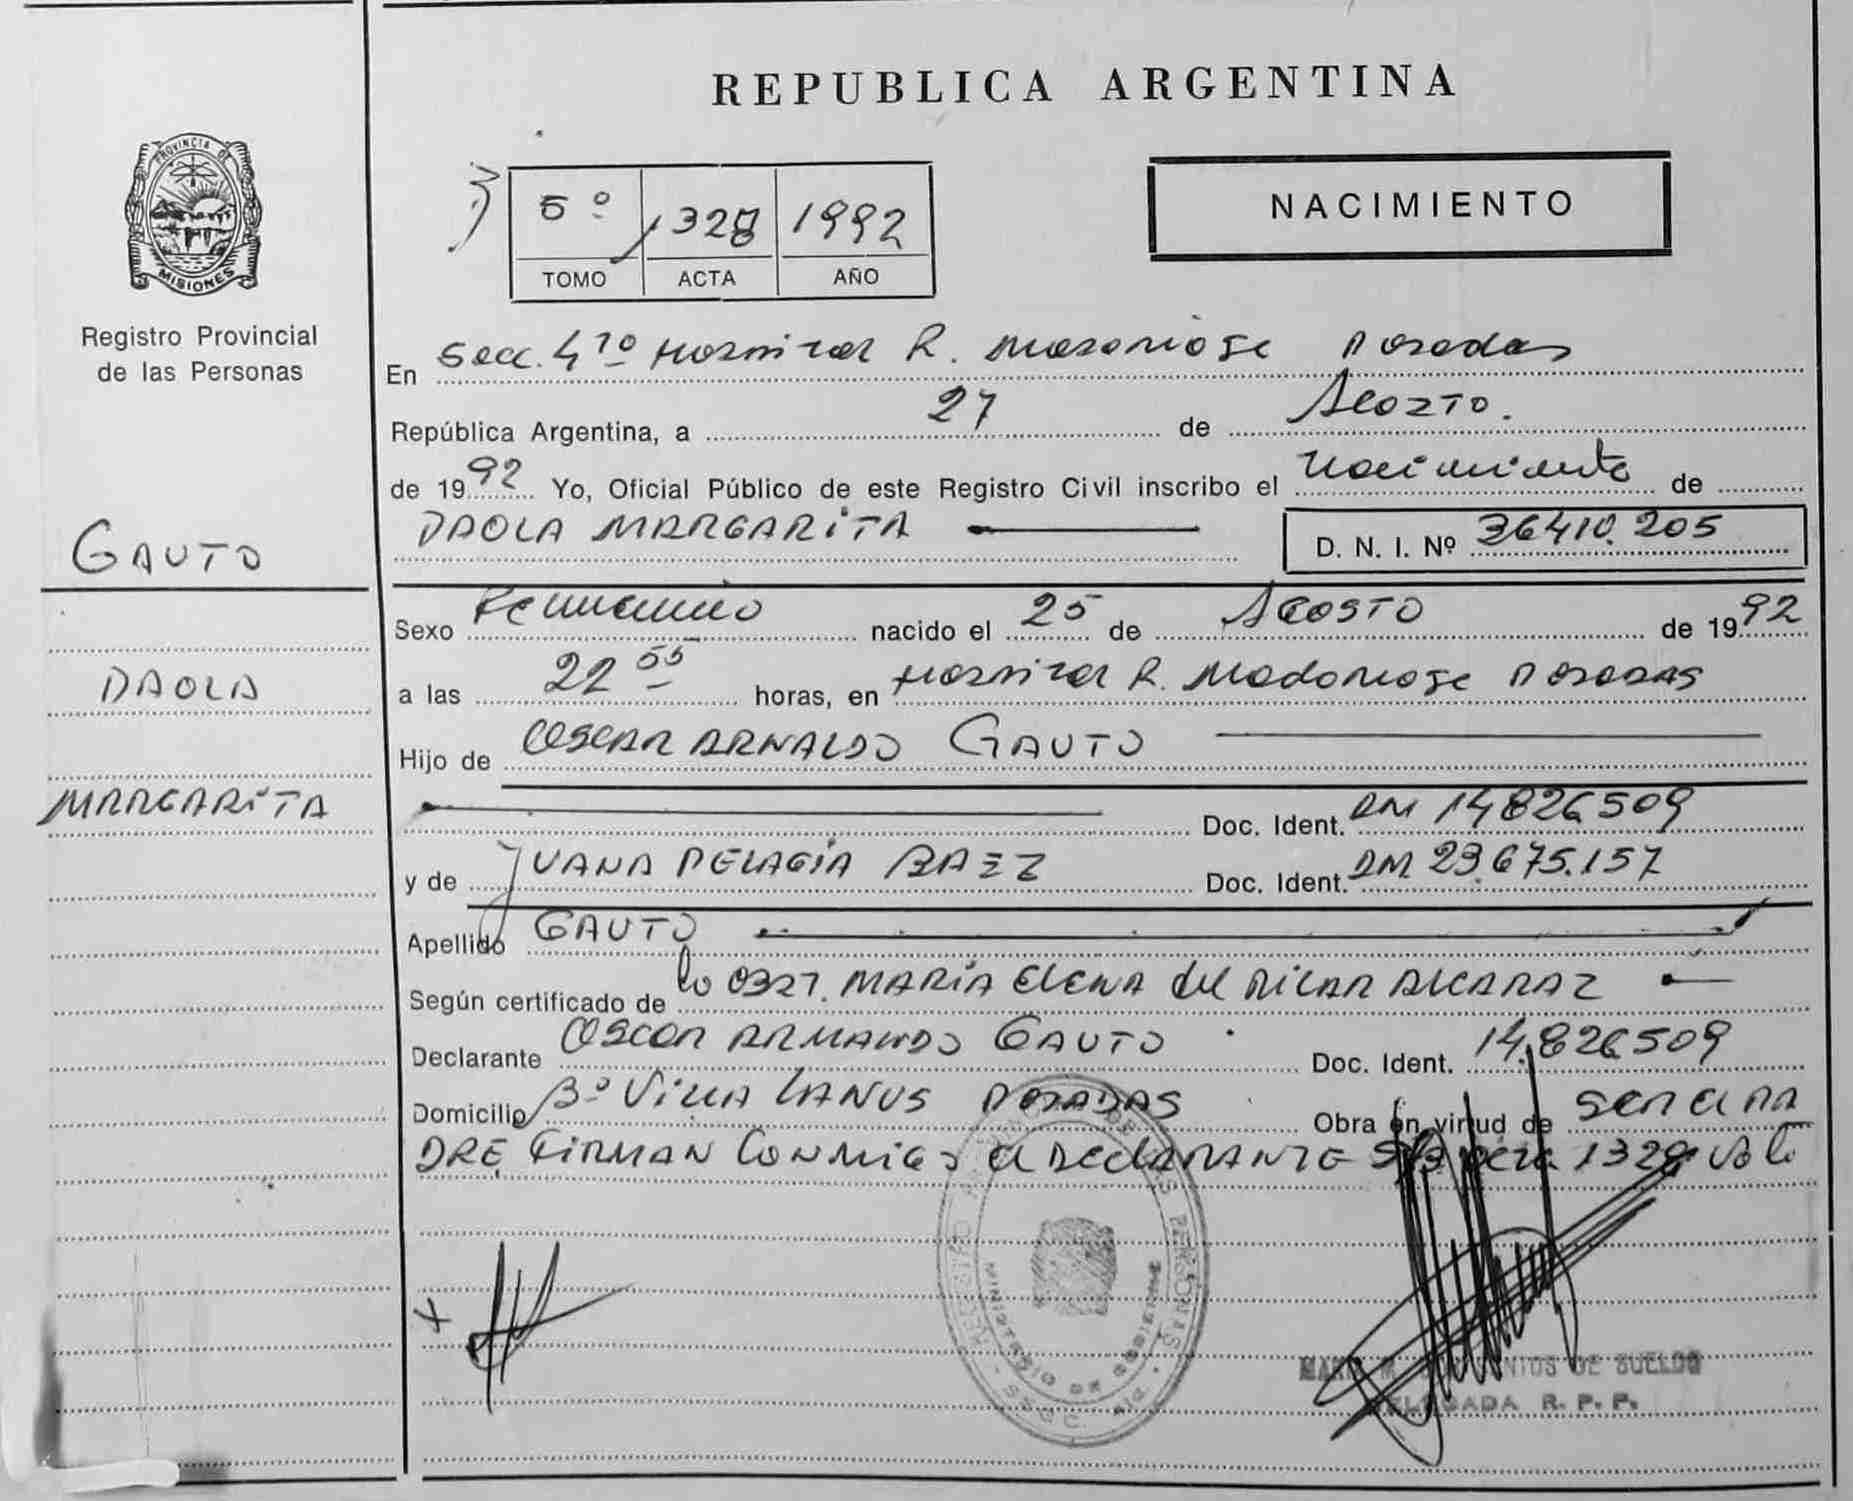 REPUBLICA ARGENTINA
PROVINCIA DE
MISIONES
Registro Provincial
de las Personas
5º 1328 1992
TOMO ACTA AÑO
NACIMIENTO
En Secc. 4ta Hospital R. Madariaga Posadas
República Argentina, a 27 de Agosto.
de 1992 Yo, Oficial Público de este Registro Civil inscribo el nacimiento de
PAOLA MARGARITA
D. N. I. Nº 36410.205
GAUTO
PAOLA
MARGARITA
Sexo Femenino nacido el 25 de AGOSTO de 1992
a las 22 55 horas, en Hospital R. Madariaga POSADAS
Hijo de OSCAR ARNALDO GAUTO
Doc. Ident. DM 14826509
y de JUANA PELAGIA BAEZ Doc. Ident. DM 23.675.157
Apellido GAUTO
Según certificado de MARIA ELENA del PILAR ALCARAZ
Declarante OSCAR ARMANDO GAUTO Doc. Ident. 14.826509
Domicilio Bº VILLA LANUS POSADAS Obra en virtud de SER El PA
DRE FIRMAN CONMIGO el DEClARANTE 1328
REGISTRO DE LAS PERSONAS
MINISTERIO DE GOBIERNO
DE SUELDO
DELEGADA R. P. P.